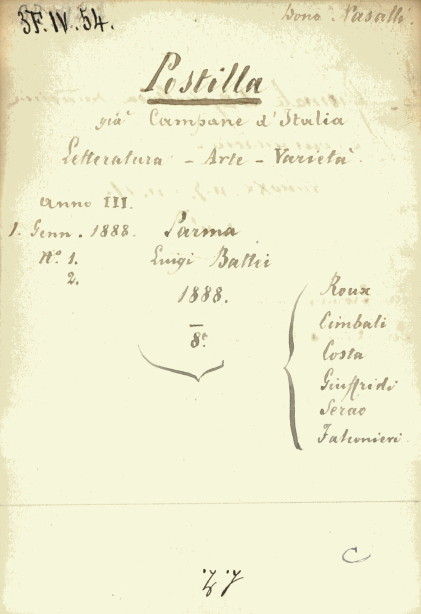 3F.IV.54.
Dono Nasalli.
Postilla
già Campane d'Italia
Letteratura - Arte - Varietà
Anno III.
1. Genn. 1888. Parma
Nº 1. Luigi Battei
2.
1888.
8º
Roux
Cimbali
Costa
Giuffridi
Serao
Falconieri
C